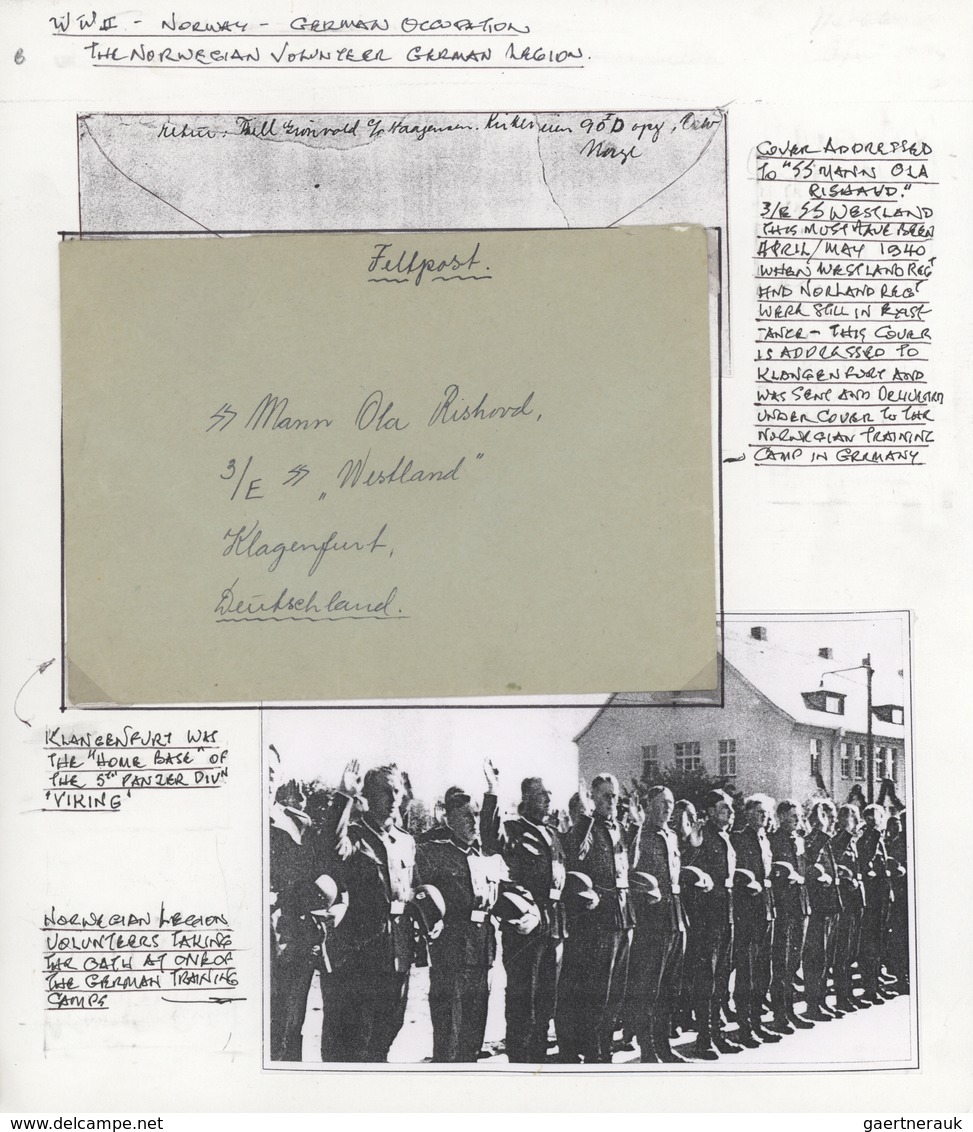 WWII - NORWAY - GERMAN OCCUPATION
THE NORWEGIAN VOLUNTEER GERMAN LEGION.
6
90 D opg.
Norge
Feltpost.
SS Mann Ola Rishovd,
3/E SS „Westland"
Klagenfurt,
Deutschland.
COVER ADDRESSED
TO "SS MANN OLA
RISHAUD."
3/E SS WESTLAND
THIS MUST HAVE BEEN
APRIL/MAY 1940
WHEN WESTLAND REGT
AND NORLAND REGT
WERE STILL IN EXIST-
ANCE - THIS COVER
IS ADDRESSED TO
KLANGENFURT AND
WAS SENT AND DELIVERED
UNDER COVER TO THE
NORWEGIAN TRAINING
CAMP IN GERMANY
KLANGENFURT WAS
THE "HOME BASE" OF
THE 5TH PANZER DIVN
"VIKING"
NORWEGIAN LEGION
VOLUNTEERS TAKING
THE OATH AT ONE OF
THE GERMAN TRAINING
CAMPS
www.delcampe.net
gaertnerauk